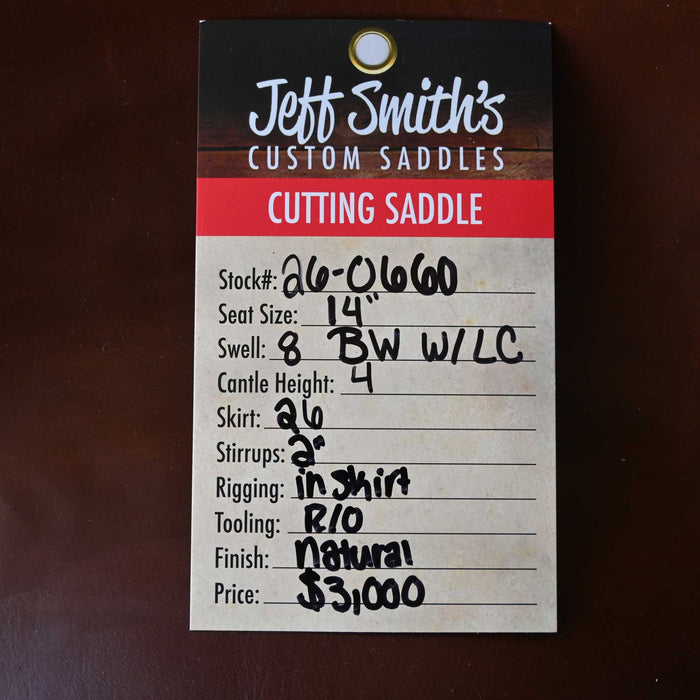 Jeff Smith's
CUSTOM SADDLES
CUTTING SADDLE
Stock#: 26-0660
Seat Size: 14"
Swell: 8 BW W/LC
Cantle Height: 4
Skirt: 26
Stirrups: 2"
Rigging: in skirt
Tooling: R/O
Finish: natural
Price: $3,000